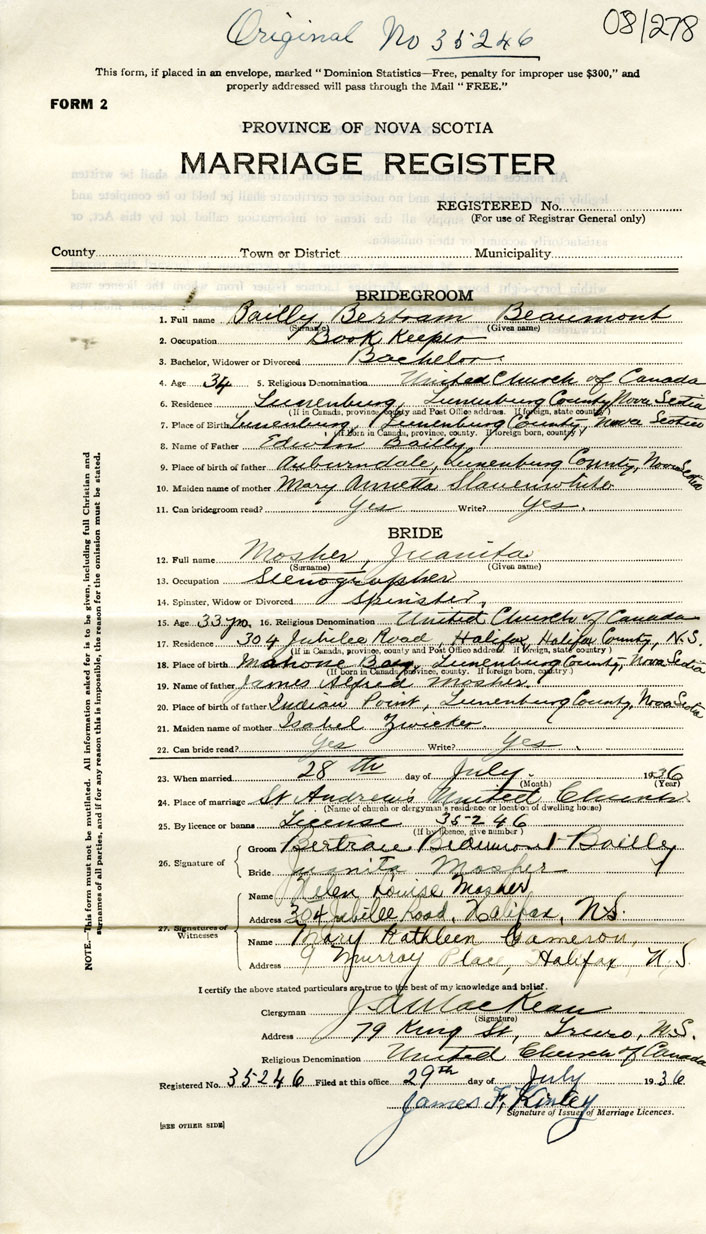 08/278
Original No 35246
This form, if placed in an envelope, marked "Dominion Statistics—Free, penalty for improper use $300," and
properly addressed will pass through the Mail "FREE."
FORM 2
PROVINCE OF NOVA SCOTIA
MARRIAGE REGISTER
REGISTERED No.
(For use of Registrar General only)
County Town or District Municipality
BRIDEGROOM
1. Full name Bailly, Bertram Beaumont
(Surname) (Given name)
2. Occupation Book Keeper
3. Bachelor, Widower or Divorced Bachelor
4. Age 34 5. Religious Denomination United Church of Canada
6. Residence Lunenburg, Lunenburg County Nova Scotia
(If in Canada, province, county and Post Office address. If foreign, state county)
7. Place of Birth Lunenburg, Lunenburg County, Nova Scotia
(If born in Canada, province, county. If foreign born, country)
8. Name of Father Edwin Bailly
9. Place of birth of father Auburndale, Lunenburg County, Nova Scotia
10. Maiden name of mother Mary Annetta Slauenwhite
11. Can bridegroom read? Yes Write? Yes.
BRIDE
12. Full name Mosher, Juanita
(Surname) (Given name)
13. Occupation Stenographer
14. Spinster, Widow or Divorced Spinster.
15. Age 33 yrs. 16. Religious Denomination United Church of Canada
17. Residence 304 Jubilee Road, Halifax, Halifax County, N.S.
(If in Canada, province, county and Post Office address. If foreign, state county)
18. Place of birth Mahone Bay, Lunenburg County, Nova Scotia
(If born in Canada, province, county. If foreign born, country)
19. Name of father James Alfred Mosher.
20. Place of birth of father Indian Point, Lunenburg County, Nova Scotia
21. Maiden name of mother Isabel Zwicker.
22. Can bride read? Yes Write? Yes.
23. When married 28th day of July 1936
(Month) (Year)
24. Place of marriage St Andrew's United Church
(Name of church or clergyman's residence or location of dwelling house)
25. By licence or banns License 35246
(If by licence, give number)
26. Signature of Groom Bertram Beaumont Bailly
Bride Juanita Mosher
27. Signatures of Witnesses
Name Helen Louise Mosher
Address 304 Jubilee Road, Halifax, N.S.
Name Mary Kathleen Cameron,
Address 9 Murray Place, Halifax N.S.
I certify the above stated particulars are true to the best of my knowledge and belief.
Clergyman J A MacKean
(Signature)
Address 79 King St, Truro, N.S.
Religious Denomination United Church of Canada
Registered No. 35246 Filed at this office 29th day of July 1936
James F. Kinley
Signature of Issuer of Marriage Licences.
[SEE OTHER SIDE]
NOTE.—This form must not be mutilated. All information asked for is to be given, including full Christian and
surnames of all parties, and if for any reason this is impossible, the reason for the omission must be stated.